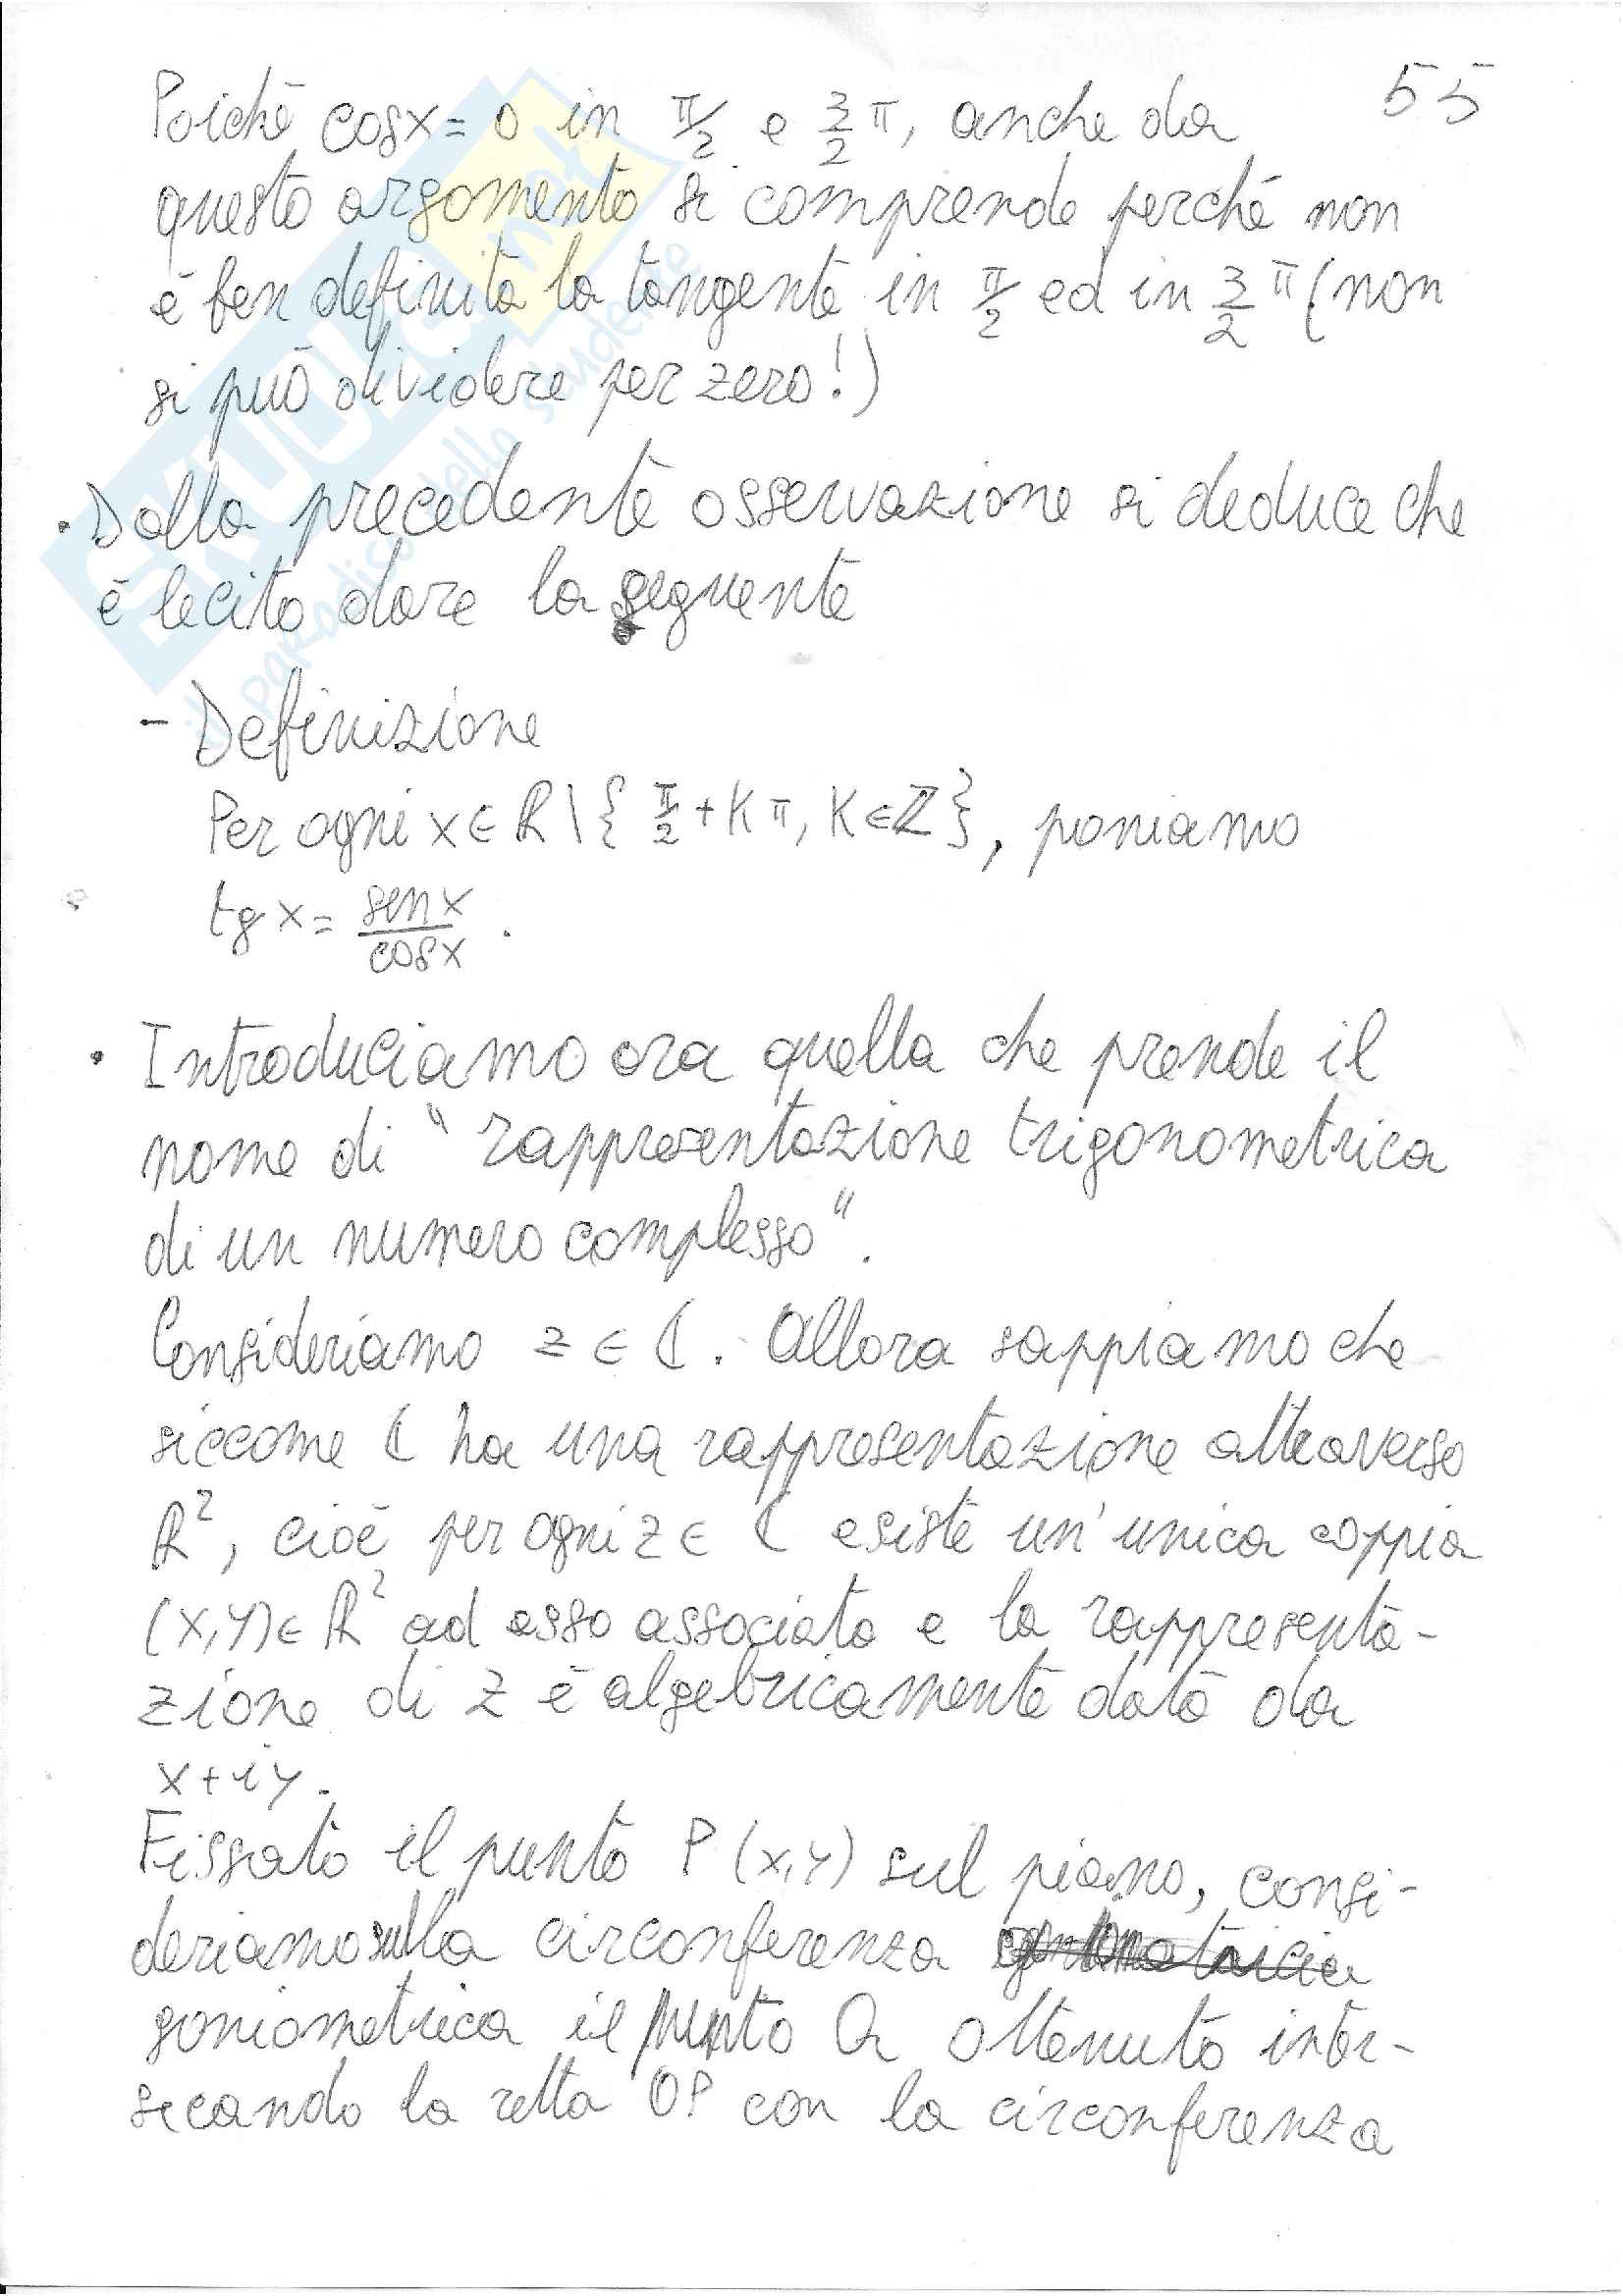 55
Poiché cosx=0 in π/2 e 3/2 π, anche da
questo argomento si comprende perché non
è ben definita la tangente in π/2 ed in 3/2 π (non
si può dividere per zero!)
• Dalla precedente osservazione si deduce che
è lecito dare la seguente
- Definizione
Per ogni x∈ℝ\{ π/2 + Kπ, K∈ℤ}, poniamo
tg x = senx/cosx .
• Introduciamo ora quella che prende il
nome di "rappresentazione trigonometrica
di un numero complesso".
Consideriamo z ∈ ℂ. Allora sappiamo che
siccome ℂ ha una rappresentazione attraverso
ℝ², cioè per ogni z ∈ ℂ esiste un'unica coppia
(x,y)∈ ℝ² ad esso associata e la rappresenta-
zione di z è algebricamente data da
x+iy.
Fissato il punto P(x,y) sul piano, consi-
deriamo sulla circonferenza
goniometrica il punto Q ottenuto inter-
secando la retta OP con la circonferenza
SKUOLA.net
il paradiso dello studente